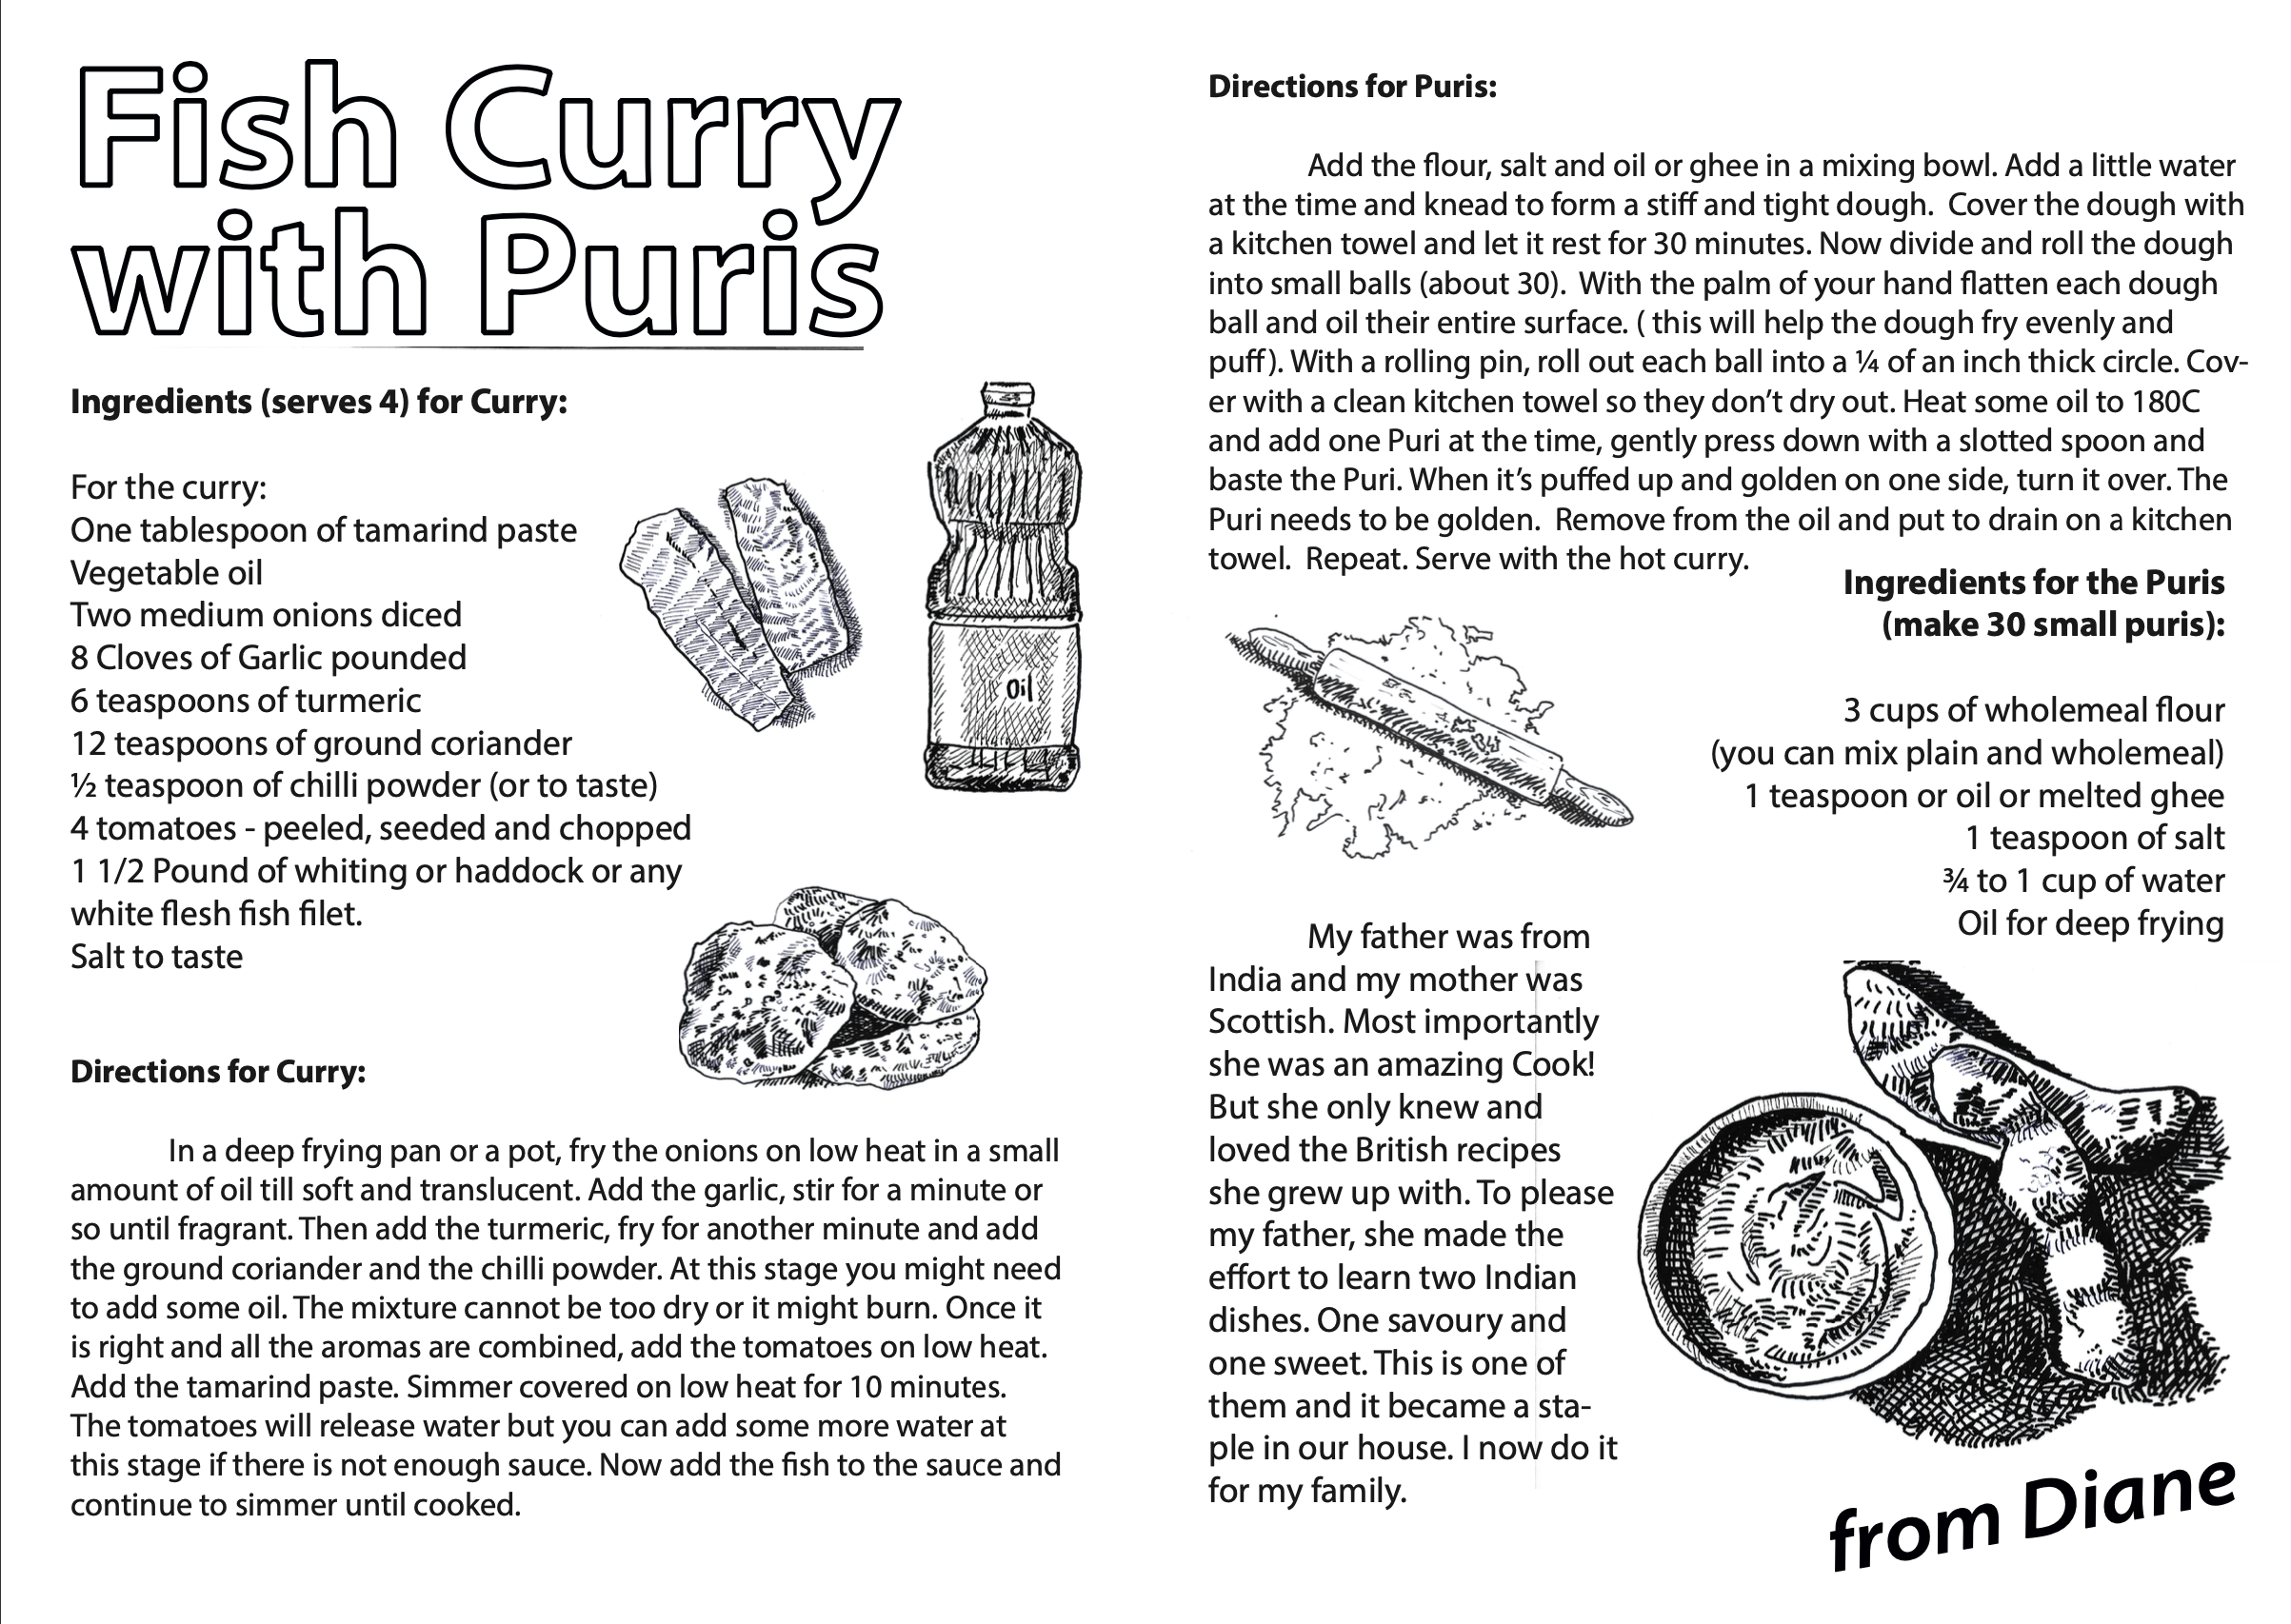 Fish Curry
with Puris
Ingredients (serves 4) for Curry:
For the curry:
One tablespoon of tamarind paste
Vegetable oil
Two medium onions diced
8 Cloves of Garlic pounded
6 teaspoons of turmeric
12 teaspoons of ground coriander
½ teaspoon of chilli powder (or to taste)
4 tomatoes - peeled, seeded and chopped
1 1/2 Pound of whiting or haddock or any
white flesh fish filet.
Salt to taste
Oil
Directions for Curry:
In a deep frying pan or a pot, fry the onions on low heat in a small
amount of oil till soft and translucent. Add the garlic, stir for a minute or
so until fragrant. Then add the turmeric, fry for another minute and add
the ground coriander and the chilli powder. At this stage you might need
to add some oil. The mixture cannot be too dry or it might burn. Once it
is right and all the aromas are combined, add the tomatoes on low heat.
Add the tamarind paste. Simmer covered on low heat for 10 minutes.
The tomatoes will release water but you can add some more water at
this stage if there is not enough sauce. Now add the fish to the sauce and
continue to simmer until cooked.
Directions for Puris:
Add the flour, salt and oil or ghee in a mixing bowl. Add a little water
at the time and knead to form a stiff and tight dough.  Cover the dough with
a kitchen towel and let it rest for 30 minutes. Now divide and roll the dough
into small balls (about 30).  With the palm of your hand flatten each dough
ball and oil their entire surface. ( this will help the dough fry evenly and
puff). With a rolling pin, roll out each ball into a ¼ of an inch thick circle. Cov-
er with a clean kitchen towel so they don’t dry out. Heat some oil to 180C
and add one Puri at the time, gently press down with a slotted spoon and
baste the Puri. When it’s puffed up and golden on one side, turn it over. The
Puri needs to be golden.  Remove from the oil and put to drain on a kitchen
towel.  Repeat. Serve with the hot curry.
Ingredients for the Puris
(make 30 small puris):
3 cups of wholemeal flour
(you can mix plain and wholemeal)
1 teaspoon or oil or melted ghee
1 teaspoon of salt
¾ to 1 cup of water
Oil for deep frying
My father was from
India and my mother was
Scottish. Most importantly
she was an amazing Cook!
But she only knew and
loved the British recipes
she grew up with. To please
my father, she made the
effort to learn two Indian
dishes. One savoury and
one sweet. This is one of
them and it became a sta-
ple in our house. I now do it
for my family.
from Diane